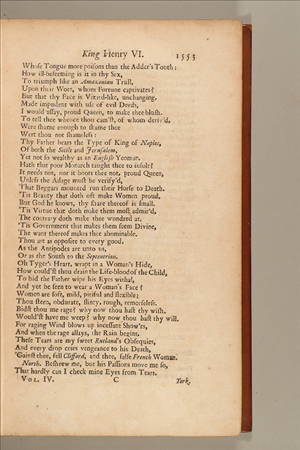 King Henry VI. 1553
Whose Tongue more poisons than the Adder's Tooth:
How ill-beseeming is it in thy Sex,
To triumph like an Amazonian Trull,
Upon their Woes, whom Fortune captivates?
But that thy Face is Vizard-like, unchanging,
Made impudent with use of evil Deeds,
I would assay, proud Queen, to make thee blush.
To tell thee whence thou cam'st, of whom deriv'd,
Were shame enough to shame thee
Wert thou not shameless:
Thy Father bears the Type of King of Naples,
Of both the Sicils and Jerusalem,
Yet not so wealthy as an English Yeoman.
Hath that poor Monarch taught thee to insult?
It needs not, nor it boots thee not, proud Queen,
Unless the Adage must be verify'd,
That Beggars mounted run their Horse to Death.
'Tis Beauty that doth oft make Women proud,
But God he knows, thy share thereof is small.
'Tis Virtue that doth make them most admir'd,
The contrary doth make thee wondred at.
'Tis Government that makes them seem Divine,
The want thereof makes thee abominable.
Thou art as opposite to every good,
As the Antipodes are unto us,
Or as the South to the Septentrion.
Oh Tyger's Heart, wrapt in a Woman's Hide,
How could'st thou drain the Life-blood of the Child,
To bid the Father wipe his Eyes withal,
And yet be seen to wear a Woman's Face?
Women are soft, mild, pitiful and flexible;
Thou stern, obdurate, flinty, rough, remorseless.
Bidst thou me rage? why now thou hast thy wish.
Would'st have me weep? why now thou hast thy will.
For raging Wind blows up incessant Show'rs,
And when the rage allays, the Rain begins.
These Tears are my sweet Rutland's Obsequies,
And every drop cries vengeance to his Death,
'Gainst thee, fell Clifford, and thee, false French Woman.
North. Beshrew me, but his Passions move me so,
That hardly can I check mine Eyes from Tears.
VOL. IV. C York,